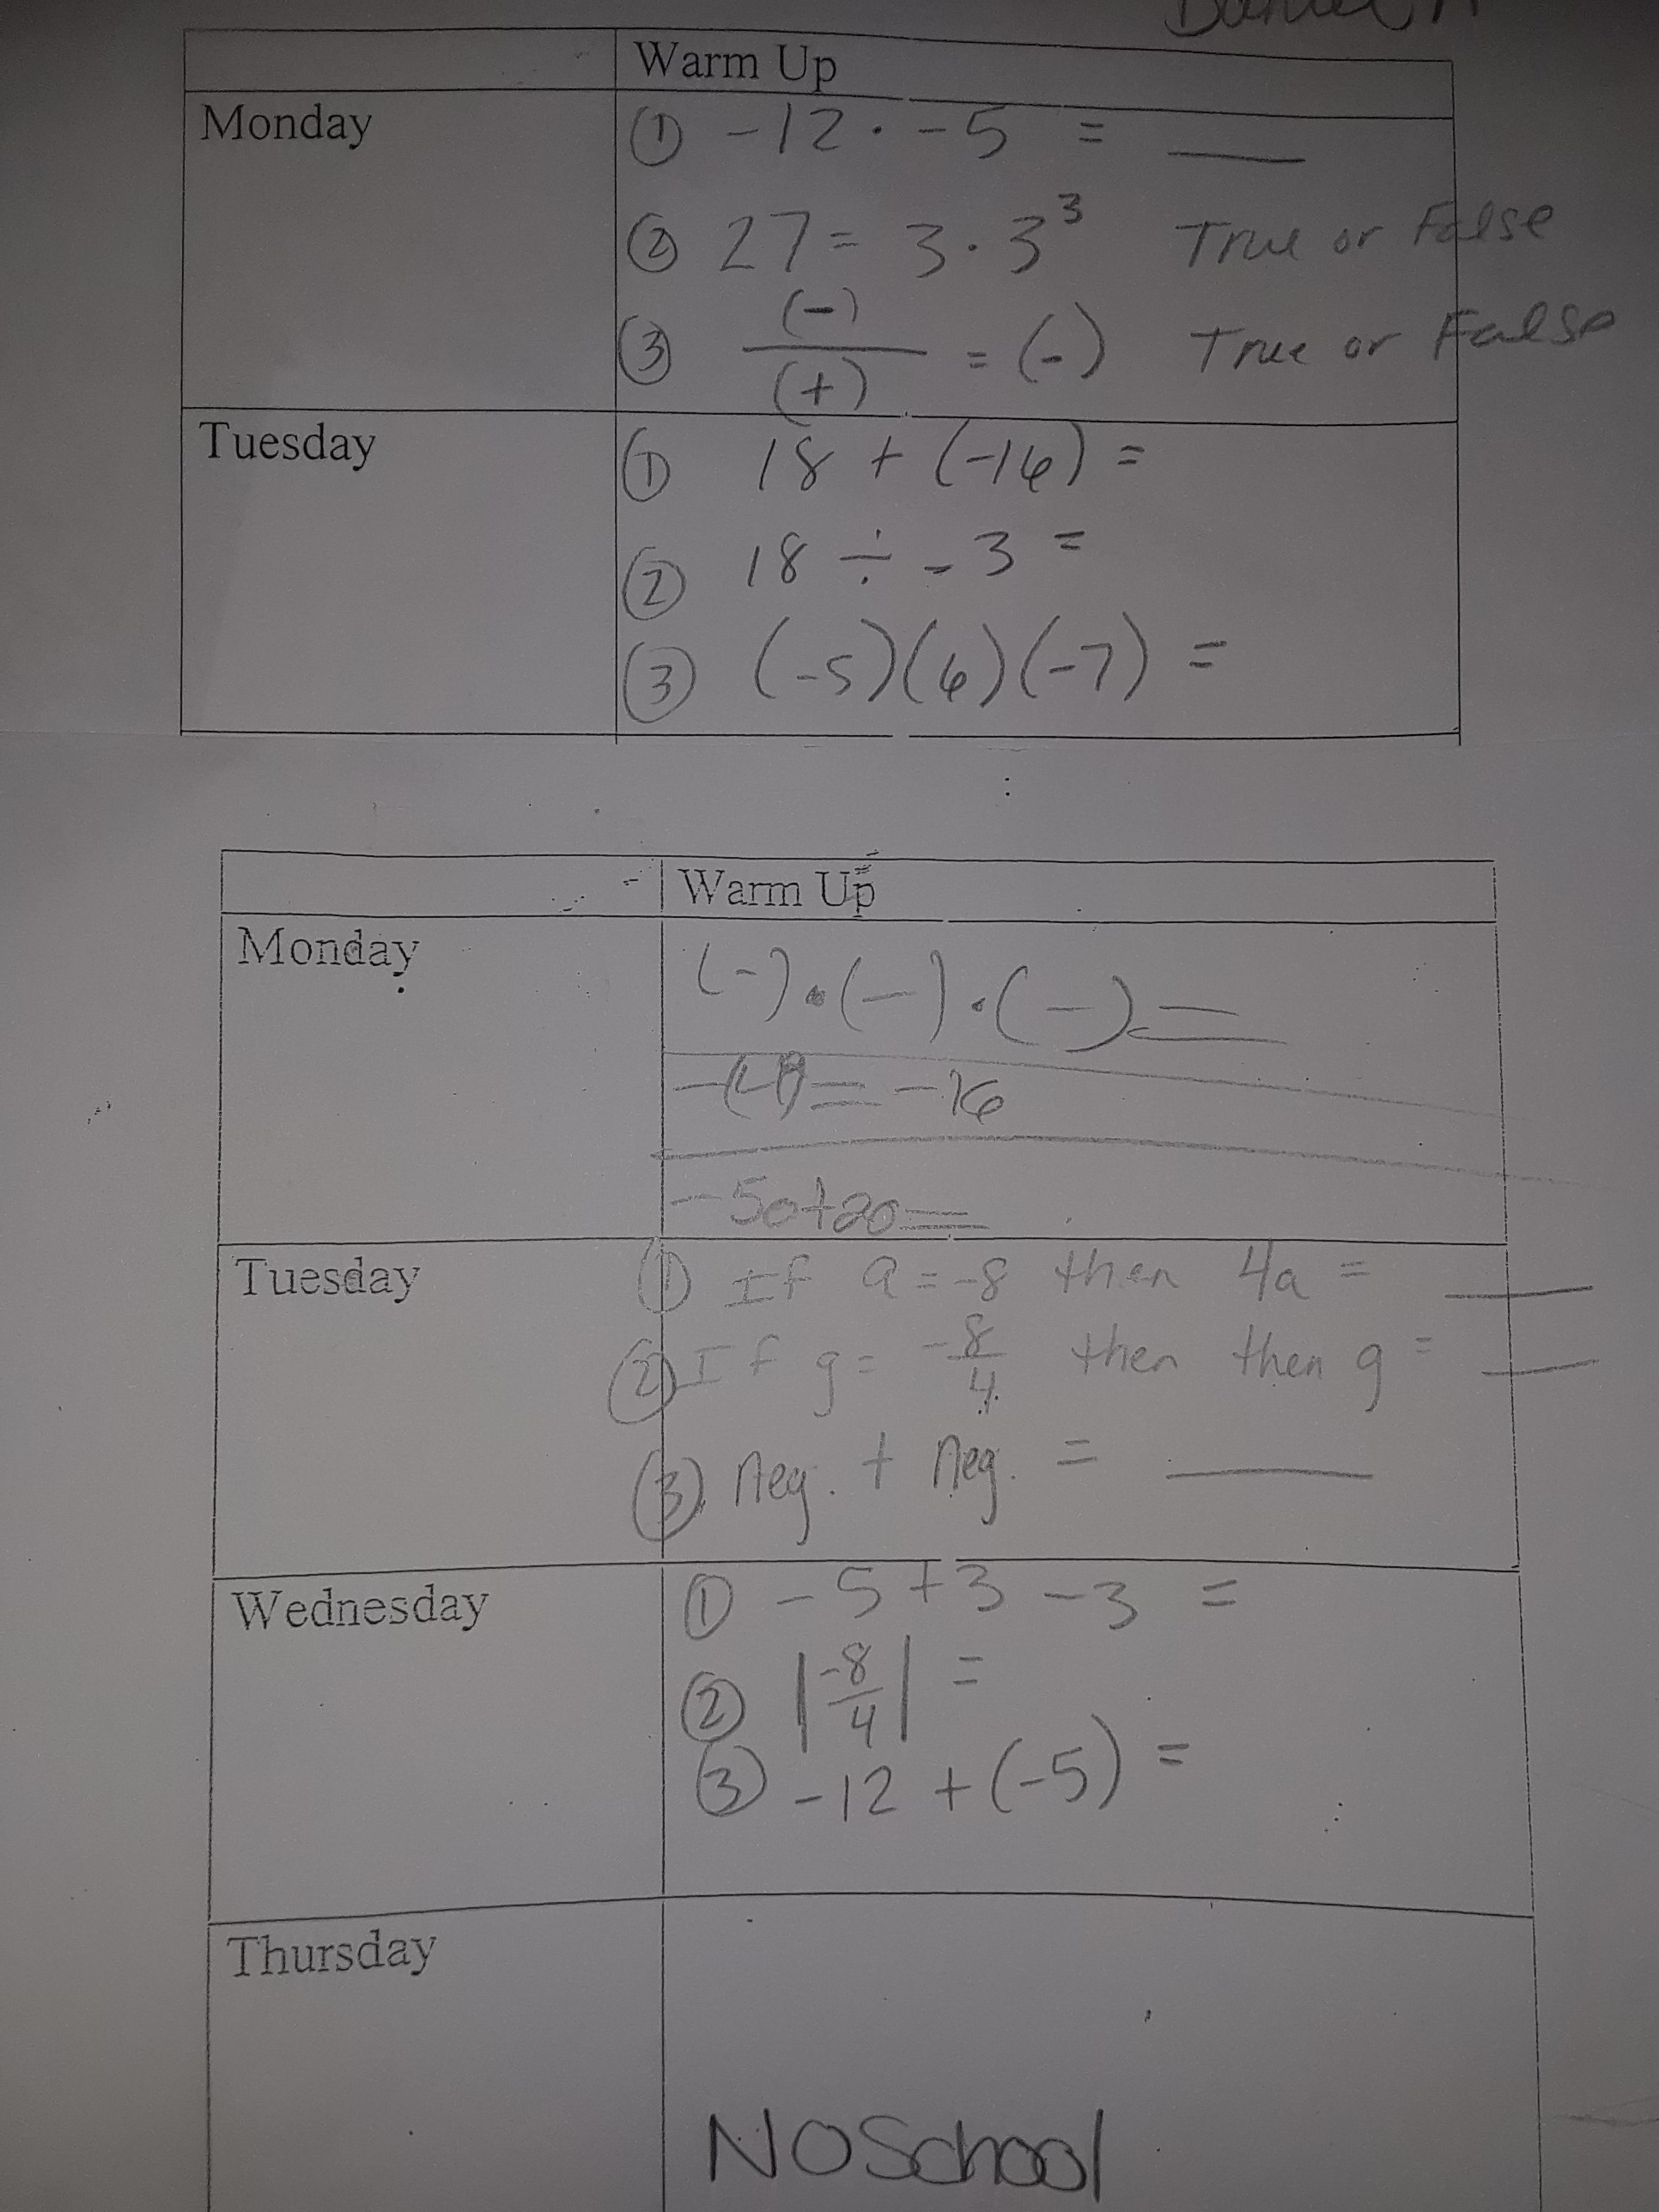 Warm Up
Monday
① -12 · -5 = ___
② 27 = 3 · 3³ True or False
③ (-)/(+) = (-) True or False
Tuesday
① 18 + (-16) =
② 18 ÷ -3 =
③ (-5)(6)(-7) =
Warm Up
Monday
(-) · (-) · (-) =
= -16
-50+20=
Tuesday
① If a = -8 then 4a = ___
② If g = -8/4 then then g = ___
③ neg. + neg. = ___
Wednesday
① -5+3-3 =
② |-8/4| =
③ -12 + (-5) =
Thursday
NO School